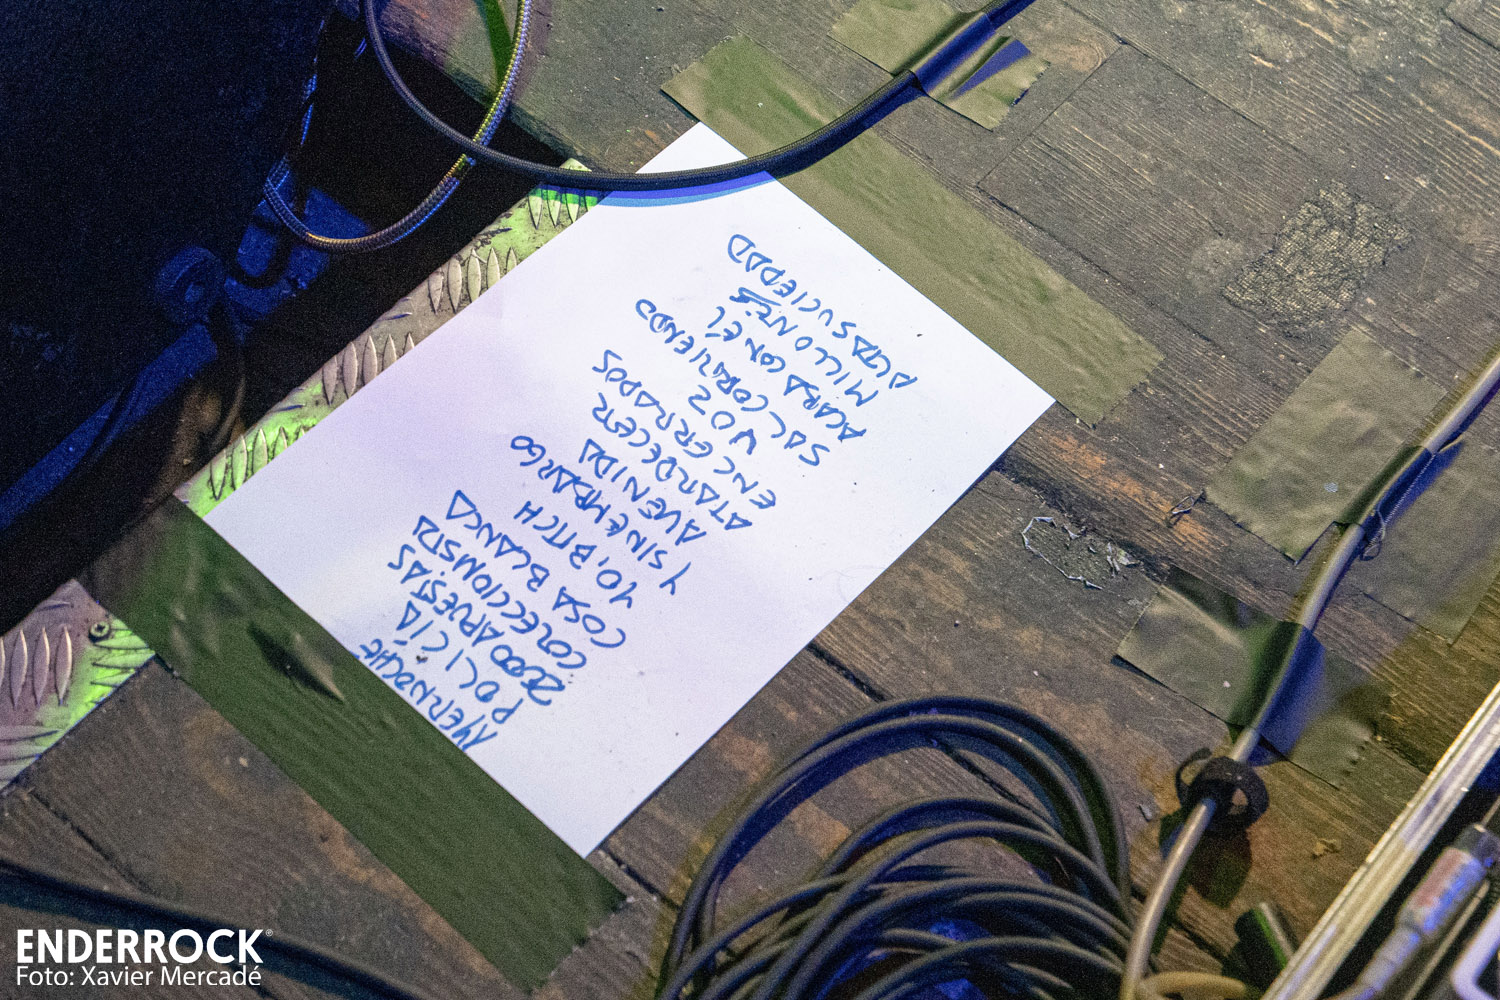 AYERNOCHE
POLICÍA
2000 APUESTAS
COLECCIONISTA
COSA BLANCA
YO, BITCH
Y SIN EMBARGO
AVENIDA
ATARDECER
ENCERRADOS
VOZ
SAL CORRIENDO
ACABA CON ÉL
MILLONES
ALTA SUCIEDAD
ENDERROCK®
Foto: Xavier Mercadé